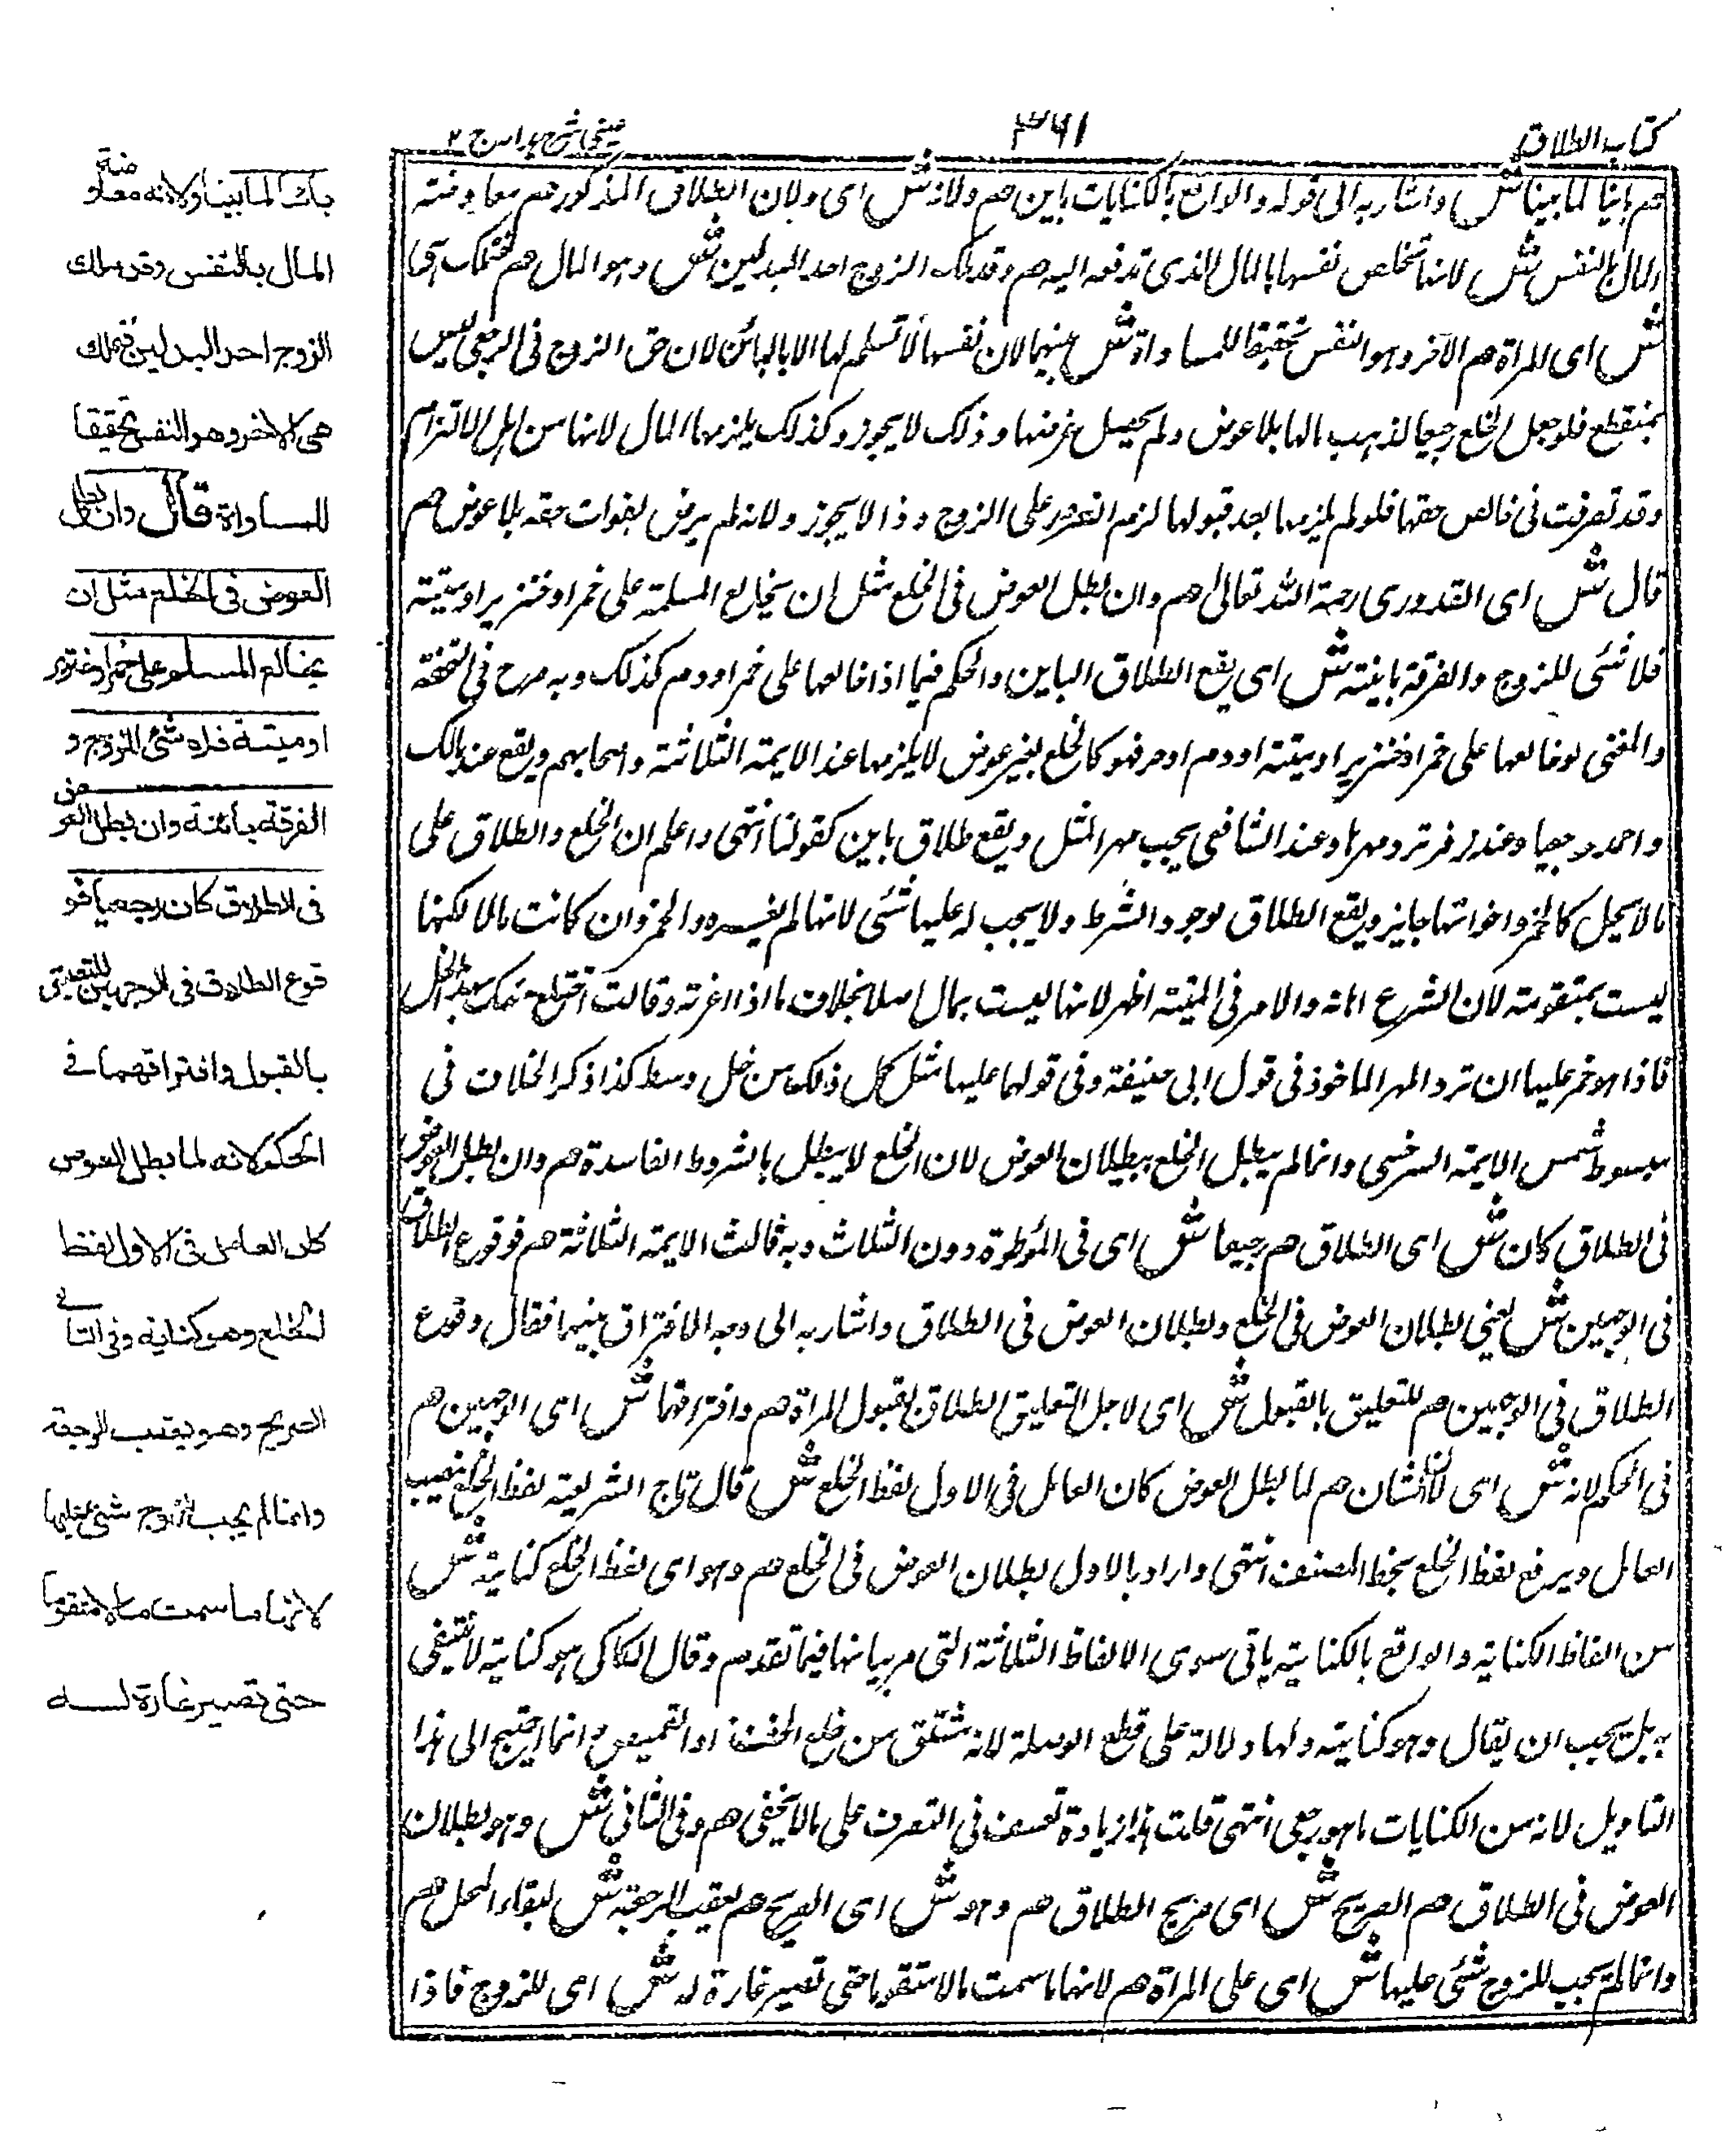 كتاب الطلاق
٣٦١
عينى شرح هداية ج ٢
هم باينا لما بينا ش واشار به الى قوله والواقع بالكنايات باين هم ولانه ش اى ولان الطلاق المذكور هم معاوضة
المال بالنفس ش لانها تخلص نفسها بالمال الذى تدفعه اليه هم وقد ملك الزوج احد البدلين ش وهو المال هم فتملك هى
ش اى المراة هم الآخر وهو النفس تحقيقا للمساواة ش بينهما لان نفسها لا تسلم لها الا بالبائن لان حق الزوج فى الرجعى ليس
بمنقطع فلو جعل الخلع رجعيا لذهب مالها بلا عوض ولم يحصل غرضها وذلك لا يجوز وكذلك يلزمها المال لانها من اهل الالتزام
وقد تصرفت فى خالص حقها فلو لم يلزمها بعد قبولها لزم الضرر على الزوج وذا لا يجوز ولانه لم يرض بفوات حقه بلا عوض هم
قال ش اى القدورى رحمة الله تعالى هم وان بطل العوض فى الخلع مثل ان يخالع المسلمة على خمر او خنزير او ميتة
فلا شئى للزوج والفرقة باينة ش اى يقع الطلاق الباين والحكم فيما اذا خالعها على خمر او دم كذلك وبه صرح فى التحفة
والمغنى لو خالعها على خمر او خنزير او ميتة او دم او حر فهو كالخلع بغير عوض لا يلزمها عند الايمة الثلاثة واصحابهم ويقع عند مالك
واحمد رجعيا وعند زفر ترد مهرها وعند الشافعى يجب مهر المثل ويقع طلاق باين كقولنا انتهى واعلم ان الخلع والطلاق على
مالا يحل كالخمر واخواتها جايز ويقع الطلاق لوجود الشرط ولا يجب له عليها شئى لانها لم تغره والخمر وان كانت مالا لكنها
ليست بمتقومة لان الشرع اهانه والامر فى الميتة اظهر لانها ليست بمال اصلا بخلاف ما اذا غرته وقالت اختلع منك بهذا الخل
فاذا هو خمر عليها ان ترد المهر الماخوذ فى قول ابى حنيفة وفى قولهما عليها مثل كيل ذلك من خل وسط كذا ذكر الخلاف فى
مبسوط شمس الايمة السرخسى وانما لم يبطل الخلع ببطلان العوض لان الخلع لا يبطل بالشروط الفاسدة هم وان بطل العوض
فى الطلاق كان ش اى الطلاق هم رجعيا ش اى فى الموطوة دون الثلاث وبه قالت الايمة الثلاثة هم فوقوع الطلاق
فى الوجهين ش يعنى بطلان العوض فى الخلع وبطلان العوض فى الطلاق واشار به الى وجه الافتراق بينهما فقال وقوع
الطلاق فى الوجهين هم للتعليق بالقبول ش اى لاجل التعليق الطلاق بقبول المراة هم وافتراقهما ش اى الوجهين هم
فى الحكم لانه ش اى لان الشان هم لما بطل العوض كان العامل فى الاول لفظ الخلع ش قال تاج الشريعة لفظ الخلع بنصب
العامل ويرفع لفظ الخلع بخط المصنف انتهى واراد بالاول بطلان العوض فى الخلع هم وهو اى لفظ الخلع كناية ش
من الفاظ الكناية والواقع بالكناية باقى سوى الالفاظ الثلاثة التى مر بيانها فيما تقدم وقال الكاكى هو كناية لا يكتفى
به بل يجب ان يقال وهو كناية ولها دلالة على قطع الوصلة لانه مشتق من خلع الخف او القميص وانما احتيج الى هذا
التاويل لانه من الكنايات ما هو رجعى انتهى قلت هذا زيادة تعسف فى التصرف على مالا يخفى هم وفى الثانى ش وهو بطلان
العوض فى الطلاق هم الصريح ش اى صريح الطلاق هم وهو ش اى الصريح هم يعقب الرجعة ش لبقاء المحل هم
وانما لم يجب للزوج شئى عليها ش اى على المراة هم لانها ما سمت مالا متقوما حتى تصير غارة له ش اى للزوج فاذا
بائنا لما بينا ولانه معاوضة
المال بالنفس وقد ملك
الزوج احد البدلين فتملك
هى الاخر وهو النفس تحقيقا
للمساواة قال وان بطل
العوض فى الخلع مثل ان
يخالع المسلم على خمر او خنزير
او ميتة فلا شئى للزوج و
الفرقة بائنة وان بطل العوض
فى الطلاق كان رجعيا فو
قوع الطلاق فى الوجهين للتعليق
بالقبول وافتراقهما فى
الحكم لانه لما بطل العوض
كان العامل فى الاول لفظ
الخلع وهو كناية وفى الثانى
الصريح وهو يعقب الرجعة
وانما لم يجب للزوج شئى عليها
لانها ما سمت مالا متقوما
حتى تصير غارة له